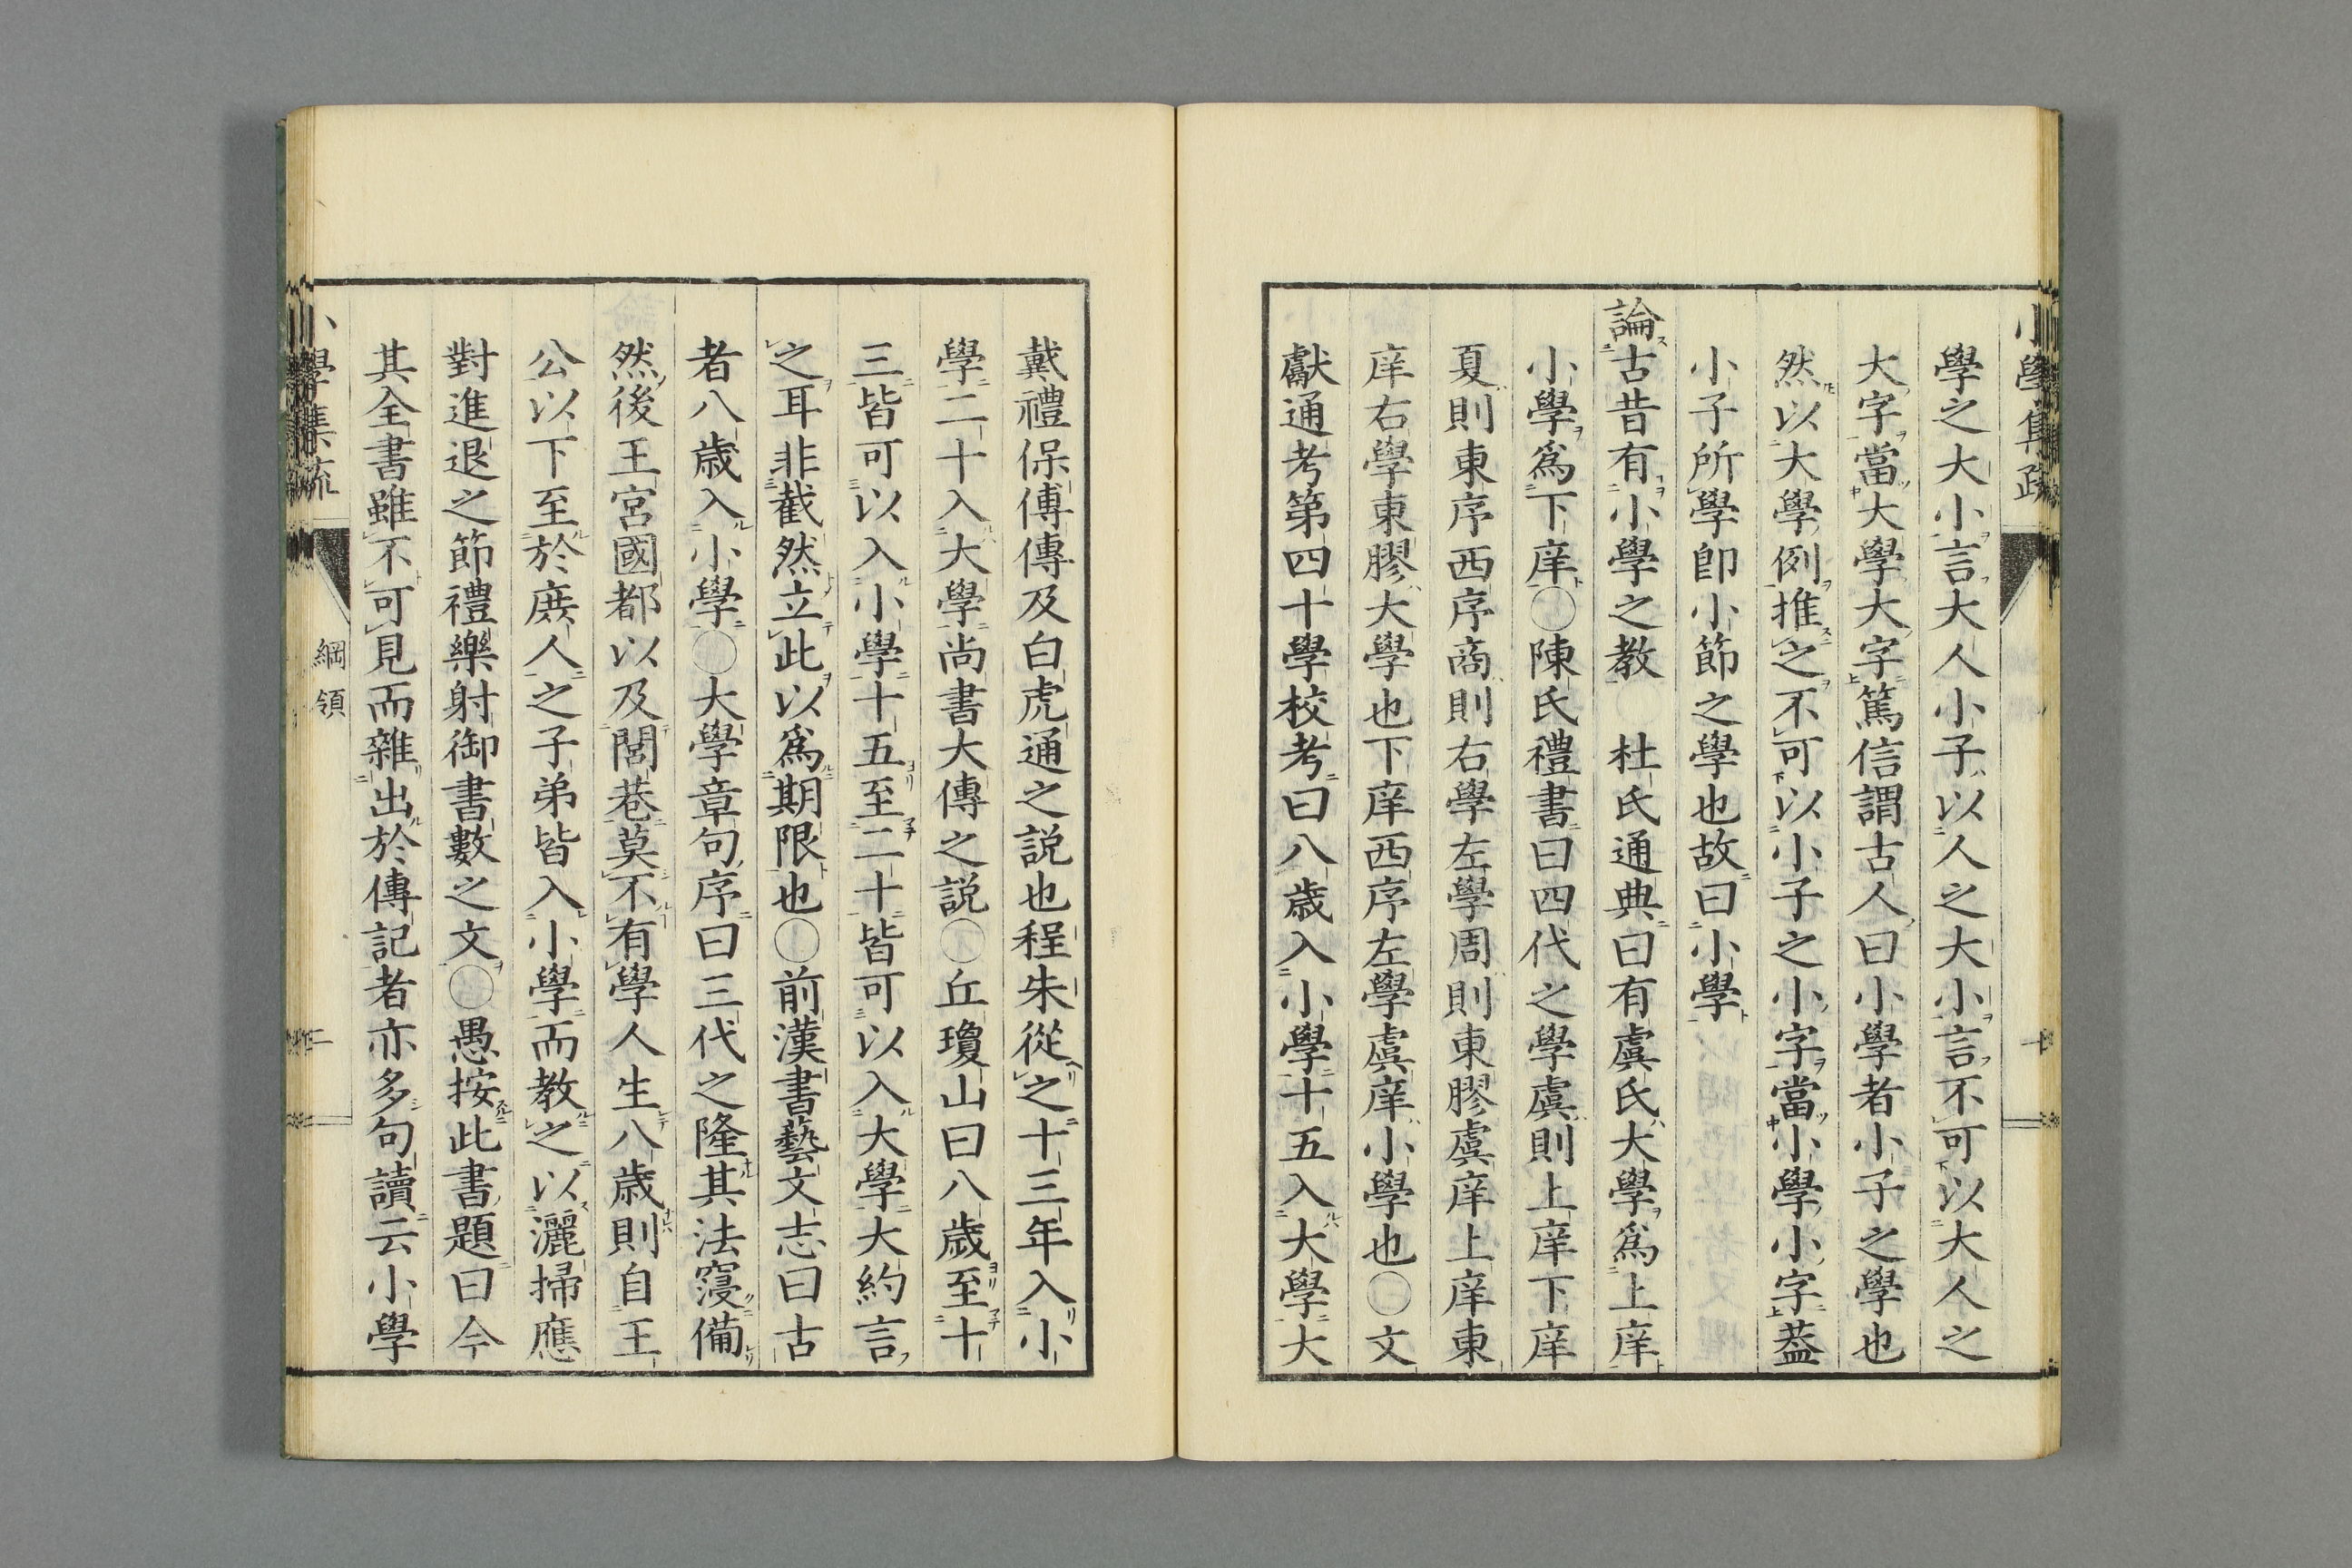 學之大小言大人小子以人之大小言不可以大人之
大字當大學大字篤信謂古人曰小學者小子之學也
然以大學例推之不可以小子之小字當小學小字葢
小子所學卽小節之學也故曰小學
論古昔有小學之教 杜氏通典曰有虞氏大學爲上庠
小學爲下庠〇陳氏禮書曰四代之學虞則上庠下庠
夏則東序西序商則右學左學周則東膠虞庠上庠東
庠右學東膠大學也下庠西序左學虞庠小學也〇文
獻通考第四十學校考曰八歳入小學十五入大學大
戴禮保傅傳及白虎通之説也程朱從之十三年入小
學二十入大學尚書大傳之説〇丘瓊山曰八歳至十
三皆可以入小學十五至二十皆可以入大學大約言
之耳非截然立此以爲期限也〇前漢書藝文志曰古
者八歳入小學〇大學章句序曰三代之隆其法寖備
然後王宮國都以及閭巷莫不有學人生八歳則自王
公以下至於庶人之子弟皆入小學而教之以灑掃應
對進退之節禮樂射御書數之文〇愚按此書題曰今
其全書雖不可見而雜出於傳記者亦多句讀云小學
綱領